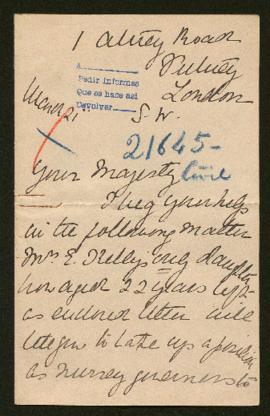 1 Abney Road
Putney
London
S. W.
A
Pedir informes
Que se hace así
Devolver
March 21
21645-
Your Majesty
I beg your help
in the following matter
Mrs. E. only daughter
now aged 22 years left
as enclosed letter will
to take up a position
as nursery governess to